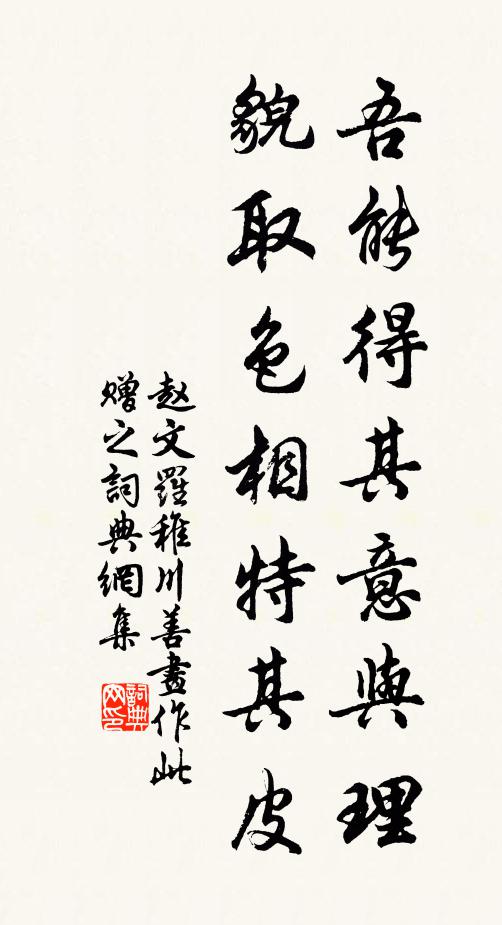 吾能得其意與理
貌取色相特其皮
赵文羅稚川善畫作此
赠之詞典網集
詞典
网印